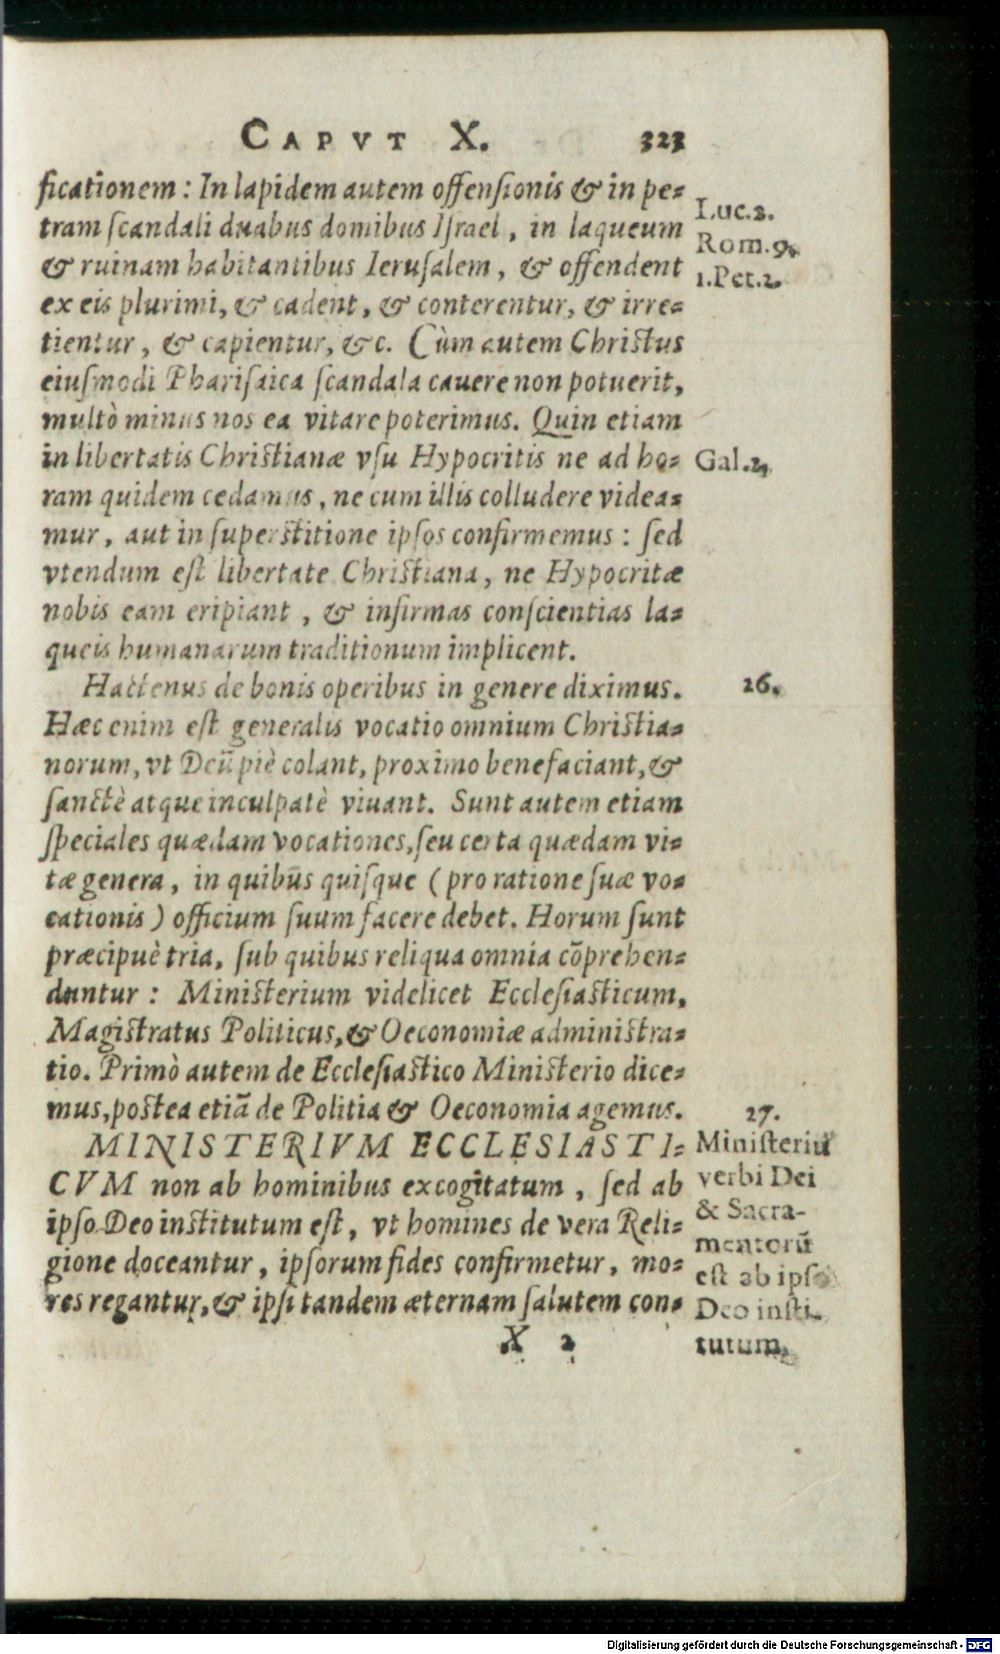 CAPVT X. 323
ficationem: In lapidem autem offensionis & in pe-
tram scandali duabus domibus Israel, in laqueum
& ruinam habitantibus Ierusalem, & offendent
ex eis plurimi, & cadent, & conterentur, & irre-
tientur, & capientur, &c. Cùm autem Christus
eiusmodi Pharisaica scandala cauere non potuerit,
multò minus nos ea vitare poterimus. Quin etiam
in libertatis Christianæ vsu Hypocritis ne ad ho-
ram quidem cedamus, ne cum illis colludere videa-
mur, aut in superstitione ipsos confirmemus: sed
vtendum est libertate Christiana, ne Hypocritæ
nobis eam eripiant, & infirmas conscientias la-
queis humanarum traditionum implicent.
Hactenus de bonis operibus in genere diximus.
Hæc enim est generalis vocatio omnium Christia-
norum, vt Deũ piè colant, proximo benefaciant, &
sanctè atque inculpatè viuant. Sunt autem etiam
speciales quædam vocationes, seu certa quædam vi-
tæ genera, in quibus quisque (pro ratione suæ vo-
cationis) officium suum facere debet. Horum sunt
præcipuè tria, sub quibus reliqua omnia cõprehen-
duntur: Ministerium videlicet Ecclesiasticum,
Magistratus Politicus, & Oeconomiæ administra-
tio. Primò autem de Ecclesiastico Ministerio dice-
mus, postea etiã de Politia & Oeconomia agemus.
MINISTERIVM ECCLESIASTI-
CVM non ab hominibus excogitatum, sed ab
ipso Deo institutum est, vt homines de vera Reli-
gione doceantur, ipsorum fides confirmetur, mo-
res regantur, & ipsi tandem æternam salutem con-
X 2
Luc.2.
Rom.9.
1.Pet.2.
Gal.2.
26.
27.
Ministeriũ
verbi Dei
& Sacra-
mentorũ
est ab ipso
Deo insti-
tutum.
Digitalisierung gefördert durch die Deutsche Forschungsgemeinschaft - DFG